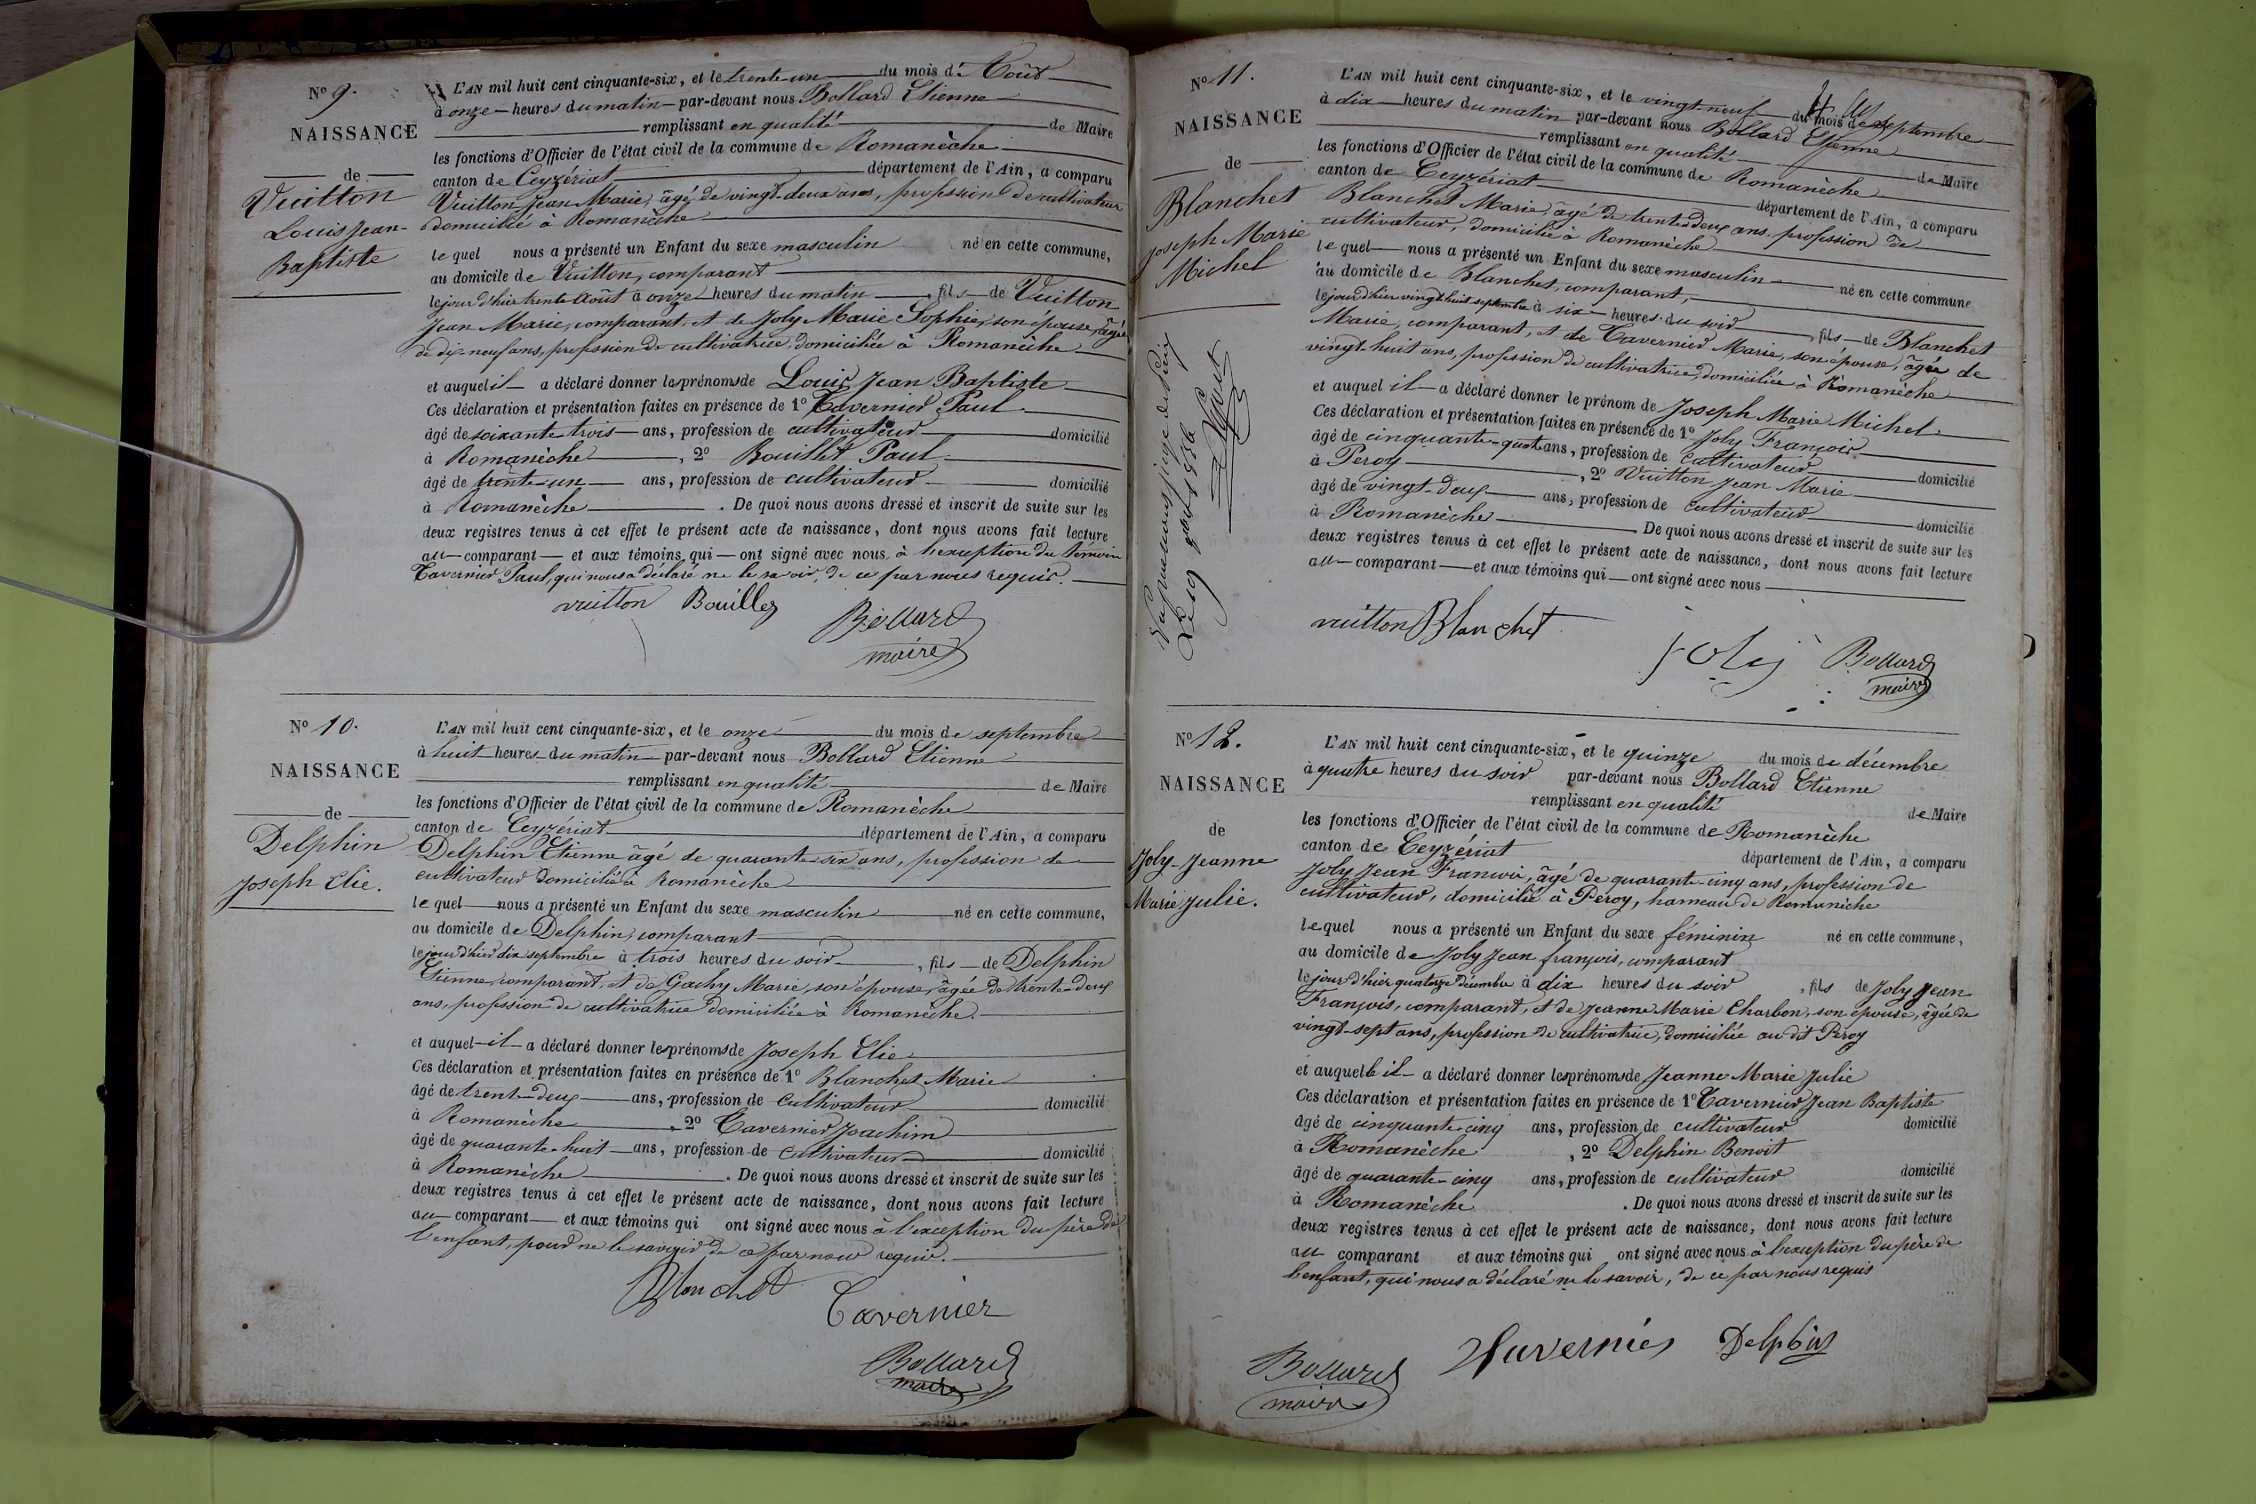 Nº 9.
NAISSANCE
de
Vuitton
Louis Jean-
Baptiste
L'AN mil huit cent cinquante-six, et le trente-un du mois d'Août
à onze heures du matin par-devant nous Bollard Etienne
remplissant en qualité de Maire
les fonctions d'Officier de l'état civil de la commune de Romanèche
canton de Ceyzériat département de l'Ain, a comparu
Vuitton Jean Marie, âgé de vingt-deux ans, profession de cultivateur
domicilié à Romanèche
lequel nous a présenté un Enfant du sexe masculin né en cette commune,
au domicile de Vuitton, comparant
le jour d'hier trente Août à onze heures du matin, fils de Vuitton
Jean Marie, comparant, et de Joly Marie Sophie, son épouse, âgée
de dix-neuf ans, profession de cultivatrice, domiciliée à Romanèche
et auquel il a déclaré donner les prénoms de Louis Jean Baptiste
Ces déclaration et présentation faites en présence de 1º Tavernier Paul
âgé de soixante-trois ans, profession de cultivateur domicilié
à Romanèche, 2º Bouillet Paul
âgé de trente-un ans, profession de cultivateur domicilié
à Romanèche. De quoi nous avons dressé et inscrit de suite sur les
deux registres tenus à cet effet le présent acte de naissance, dont nous avons fait lecture
au comparant et aux témoins qui ont signé avec nous à l'exception du témoin
Tavernier Paul, qui nous a déclaré ne le savoir, de ce par nous requis.
vuitton Bouillet
Bollard
maire
Nº 10.
NAISSANCE
de
Delphin
Joseph Elie.
L'AN mil huit cent cinquante-six, et le onze du mois de septembre
à huit heures du matin par-devant nous Bollard Etienne
remplissant en qualité de Maire
les fonctions d'Officier de l'état civil de la commune de Romanèche
canton de Ceyzériat département de l'Ain, a comparu
Delphin Etienne âgé de quarante-six ans, profession de
cultivateur domicilié à Romanèche
lequel nous a présenté un Enfant du sexe masculin né en cette commune,
au domicile de Delphin, comparant
le jour d'hier dix septembre à trois heures du soir, fils de Delphin
Etienne, comparant, et de Gachy Marie, son épouse, âgée de trente-deux
ans, profession de cultivatrice domiciliée à Romanèche.
et auquel il a déclaré donner les prénoms de Joseph Elie
Ces déclaration et présentation faites en présence de 1º Blanchet Marie
âgé de trente-deux ans, profession de cultivateur domicilié
à Romanèche, 2º Tavernier Joachim
âgé de quarante-huit ans, profession de cultivateur domicilié
à Romanèche. De quoi nous avons dressé et inscrit de suite sur les
deux registres tenus à cet effet le présent acte de naissance, dont nous avons fait lecture
au comparant et aux témoins qui ont signé avec nous à l'exception du père de
l'enfant, pour ne le savoir de ce par nous requis.
Blanchet
Tavernier
Bollard
maire
Nº 11.
NAISSANCE
de
Blanchet
Joseph Marie
Michel
L'AN mil huit cent cinquante-six, et le vingt-neuf du mois de septembre
à dix heures du matin par-devant nous Bollard Etienne
remplissant en qualité de Maire
les fonctions d'Officier de l'état civil de la commune de Romanèche
canton de Ceyzériat département de l'Ain, a comparu
Blanchet Marie, âgé de trente-deux ans, profession de
cultivateur, domicilié à Romanèche
lequel nous a présenté un Enfant du sexe masculin né en cette commune
au domicile de Blanchet, comparant,
le jour d'hier vingt-huit septembre à six heures du soir, fils de Blanchet
Marie, comparant, et de Tavernier Marie, son épouse, âgée de
vingt-huit ans, profession de cultivatrice, domiciliée à Romanèche
et auquel il a déclaré donner le prénom de Joseph Marie Michel
Ces déclaration et présentation faites en présence de 1º Joly François
âgé de cinquante-quatre ans, profession de cultivateur domicilié
à Peroy, 2º Vuitton Jean Marie
âgé de vingt-deux ans, profession de cultivateur domicilié
à Romanèche De quoi nous avons dressé et inscrit de suite sur les
deux registres tenus à cet effet le présent acte de naissance, dont nous avons fait lecture
au comparant et aux témoins qui ont signé avec nous
vuitton Blanchet
joly
Bollard
maire
Nº 12.
NAISSANCE
de
Joly Jeanne
Marie Julie.
L'AN mil huit cent cinquante-six, et le quinze du mois de décembre
à quatre heures du soir par-devant nous Bollard Etienne
remplissant en qualité de Maire
les fonctions d'Officier de l'état civil de la commune de Romanèche
canton de Ceyzériat département de l'Ain, a comparu
Joly Jean François, âgé de quarante-cinq ans, profession de
cultivateur, domicilié à Peroy, hameau de Romanèche
lequel nous a présenté un Enfant du sexe féminin né en cette commune,
au domicile de Joly Jean françois, comparant
le jour d'hier quatorze décembre à dix heures du soir, fils de Joly Jean
François, comparant, et de Jeanne Marie Charbon, son épouse, âgée de
vingt-sept ans, profession de cultivatrice, domiciliée au dit Peroy
et auquel il a déclaré donner les prénoms de Jeanne Marie Julie
Ces déclaration et présentation faites en présence de 1º Tavernier Jean Baptiste
âgé de cinquante-cinq ans, profession de cultivateur domicilié
à Romanèche, 2º Delphin Benoit
âgé de quarante-cinq ans, profession de cultivateur domicilié
à Romanèche. De quoi nous avons dressé et inscrit de suite sur les
deux registres tenus à cet effet le présent acte de naissance, dont nous avons fait lecture
au comparant et aux témoins qui ont signé avec nous à l'exception du père de
l'enfant, qui nous a déclaré ne le savoir, de ce par nous requis
Bollard
maire
Tavernier Delphin